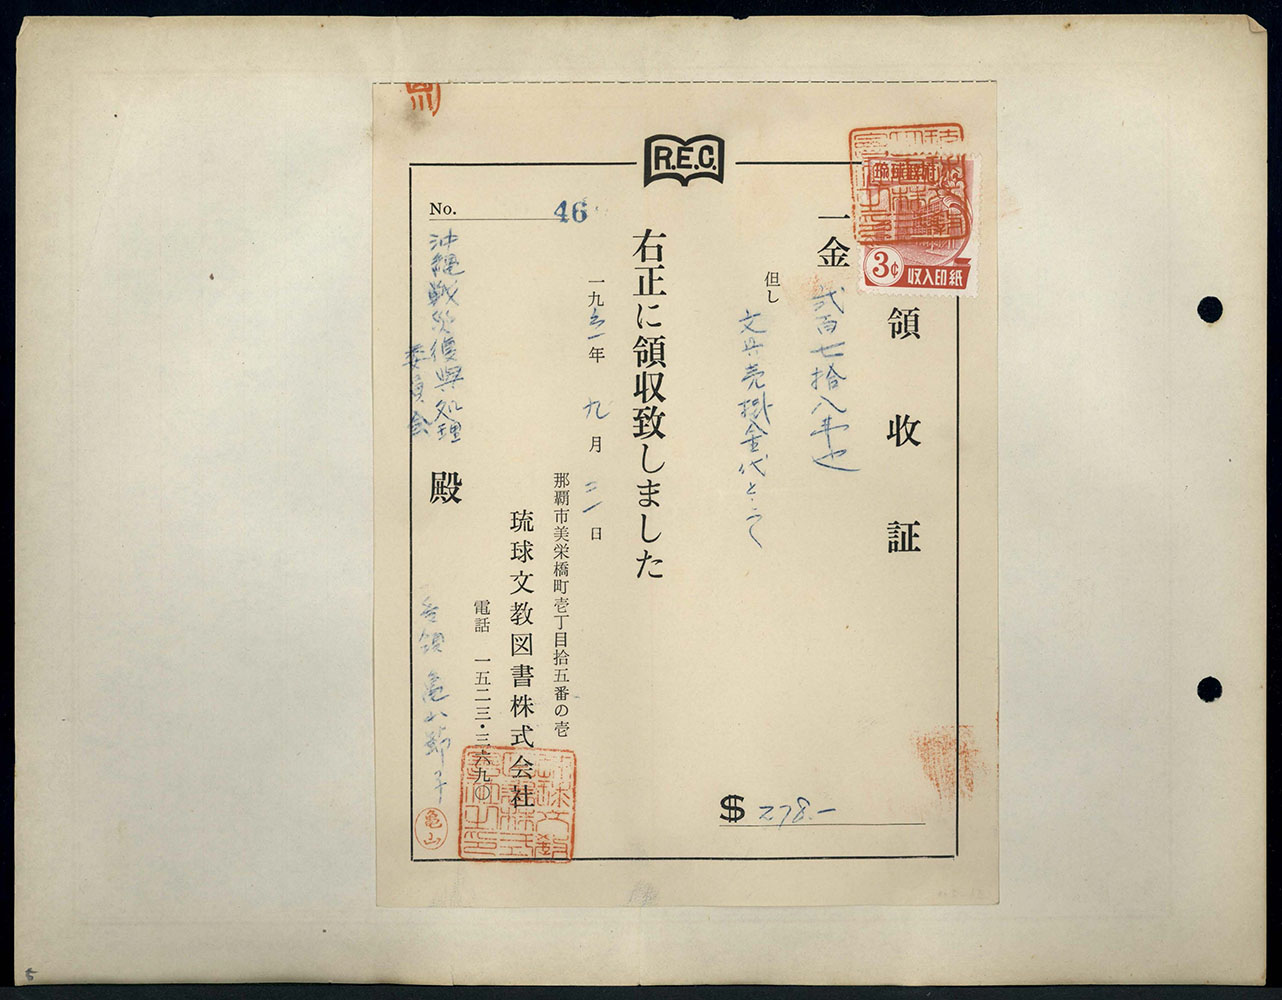 R.E.C.
領収証
琉球政府
3¢
収入印紙
一金 弐百七拾八弗也
但し 文具売掛金代として
右正に領収致しました
一九六一年 九月 二一日
那覇市美栄橋町壱丁目拾五番の壱
琉球文教図書株式会社
電話 一五二三・三六九〇
No. 46
沖縄戦災復興処理
委員会
殿
受領 亀山節子
亀山
$ 278.-
5